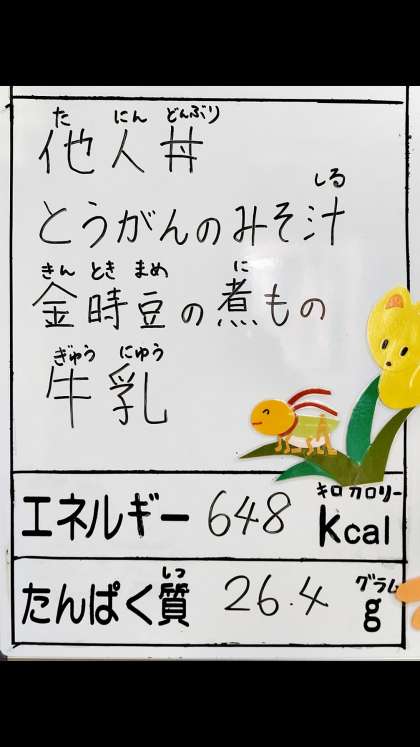 た にん どんぶり
他人丼
しる
とうがんのみそ汁
きん とき まめ に
金時豆の煮もの
ぎゅう にゅう
牛乳
キロカロリー
エネルギー 648 kcal
しつ グラム
たんぱく質 26.4 g